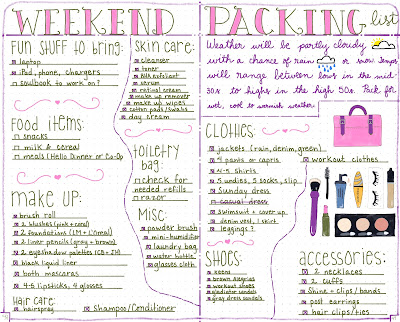 WEEKEND PACKING list
FUN STUFF to bring:
laptop
iPad, phone, chargers
soulbook to work on?
food items:
snacks
milk & cereal
meals (Hello Dinner or Co-Op
make up:
brush roll
2 blushes (pink + coral)
2 foundations (IM + L'Oreal)
2 liner pencils (grey + brown)
2 eyeshadow palettes (CB + IH)
black liquid liner
both mascaras
4-6 lipsticks, 4 glosses
Hair care:
hairspray
Shampoo/Conditioner
Skin care:
cleanser
toner
BHA exfoliant
serum
retinol cream
make up remover
make up wipes
cotton pads/swabs
day cream
toiletry bag:
check for
needed refills
razor
Misc:
powder brush
mini-humidifier
laundry bag
water bottle
glasses cloth
Weather will be partly cloudy
with a chance of rain or snow. Temps
will range between lows in the mid-
30s to highs in the high 50s. Pack for
wet, cool to warmish weather.
CLOTHES:
jackets (rain, denim, green)
4 pants or capris
4-5 shirts
5 undies, 5 socks, slip
Sunday dress
casual dress
swimsuit + cover up
denim vest, 1 skirt
leggings?
workout clothes
SHOES:
keens
brown Alegrias
workout shoes
gladiator sandals
gray dress sandals
accessories:
2 necklaces
2 cuffs
Shine + clips/bands
post earrings
hair clips/ties